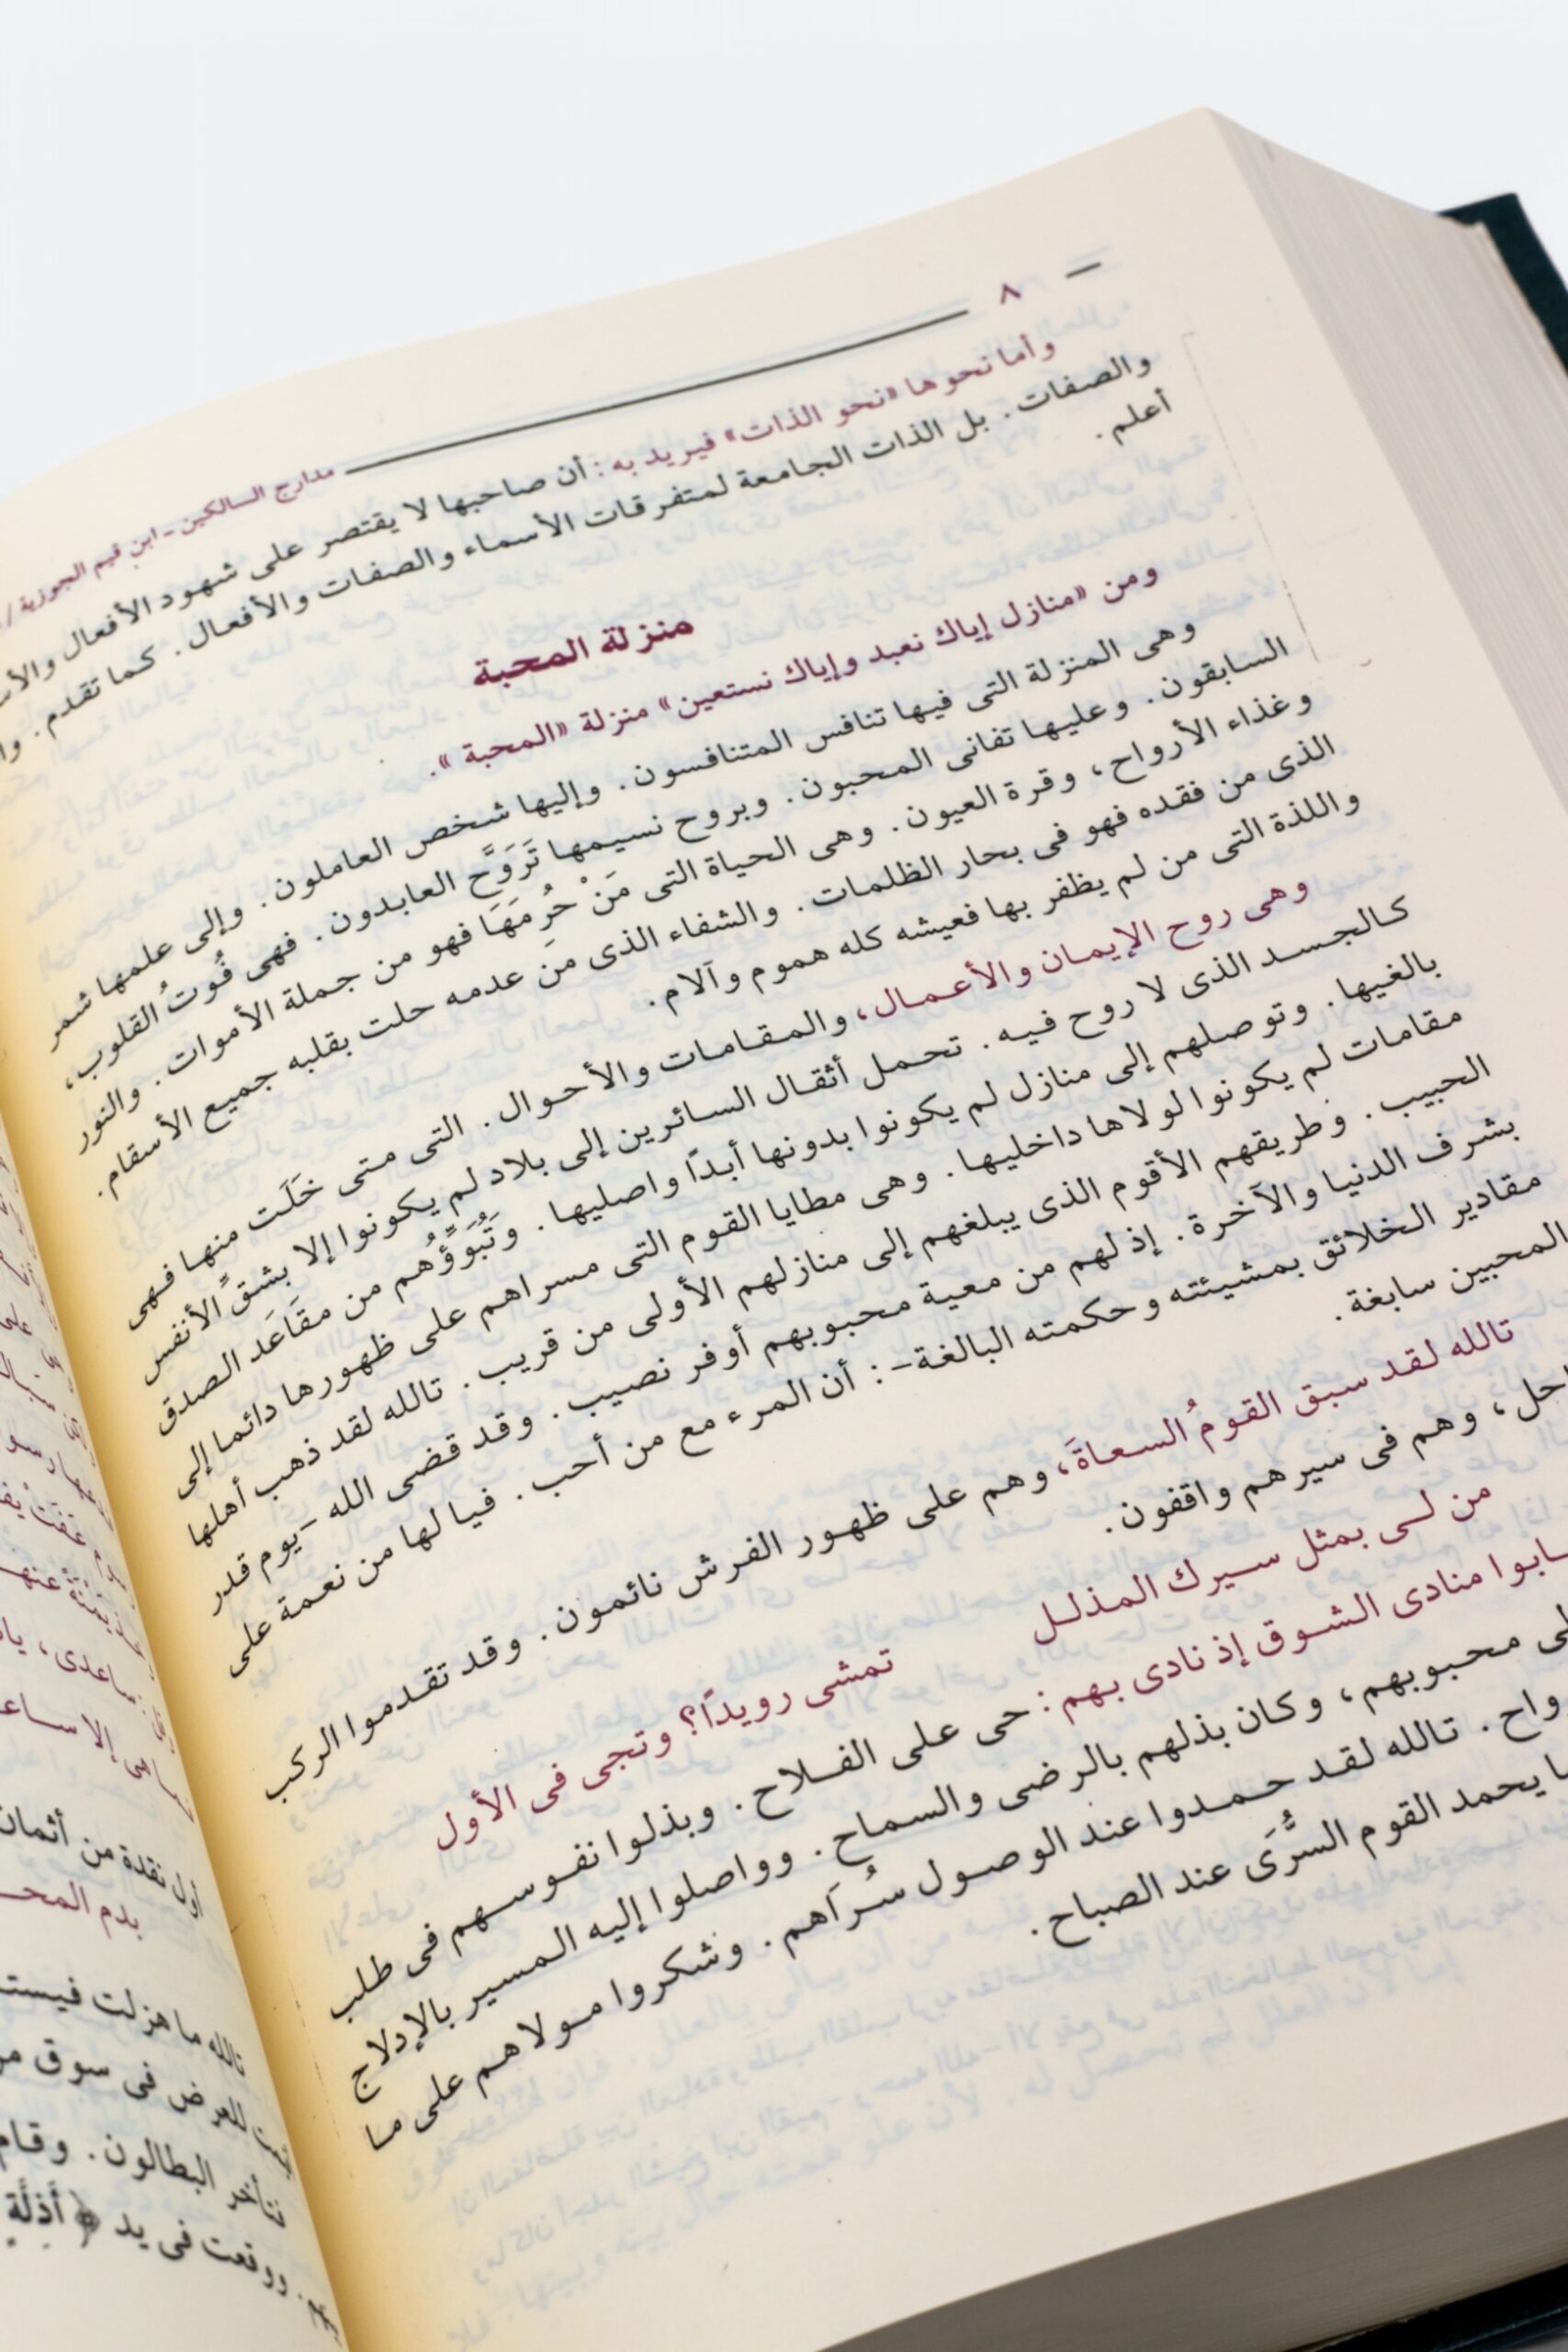 ٨ مدارج السالكين - ابن قيم الجوزية /
وأما نحوها «نحو الذات» فيريد به: أن صاحبها لا يقتصر على شهود الأفعال
والصفات. بل الذات الجامعة لمتفرقات الأسماء والصفات والأفعال. كما تقدم.
أعلم.
منزلة المحبة
ومن «منازل إياك نعبد وإياك نستعين» منزلة «المحبة».
وهى المنزلة التى فيها تنافس المتنافسون. وإليها شخص العاملون. وإلى علمها شمر
السابقون. وعليها تفانى المحبون. وبروح نسيمها تَرَوَّح العابدون. فهى قُوتُ القلوب،
وغذاء الأرواح، وقرة العيون. وهى الحياة التى مَنْ حُرِمَهَا فهو من جملة الأموات. والنور
الذى من فقده فهو فى بحار الظلمات. والشفاء الذى من عدمه حلت بقلبه جميع الأسقام.
واللذة التى من لم يظفر بها فعيشه كله هموم وآلام.
وهى روح الإيمان والأعمال، والمقامات والأحوال. التى متى خَلَت منها فهى
كالجسد الذى لا روح فيه. تحمل أثقال السائرين إلى بلاد لم يكونوا إلا بشقِّ الأنفس
بالغيها. وتوصلهم إلى منازل لم يكونوا بدونها أبدًا واصليها. وتُبَوِّؤُهم من مقَاعَد الصدق
مقامات لم يكونوا لولاها داخليها. وهى مطايا القوم التى مسراهم على ظهورها دائما إلى
الحبيب. وطريقهم الأقوم الذى يبلغهم إلى منازلهم الأولى من قريب. تالله لقد ذهب أهلها
بشرف الدنيا والآخرة. إذ لهم من معية محبوبهم أوفر نصيب. وقد قضى الله -يوم قدر
مقادير الخلائق بمشيئته وحكمته البالغة-: أن المرء مع من أحب. فيا لها من نعمة على
المحبين سابغة.
تالله لقد سبق القومُ السعاةَ، وهم على ظهور الفرش نائمون. وقد تقدموا الركب
وهم فى سيرهم واقفون.
من لى بمثل سيرك المذلل
تمشى رويدًا؟ وتجى فى الأول
منادى الشوق إذ نادى بهم: حى على الفلاح. وبذلوا نفوسهم فى طلب
محبوبهم، وكان بذلهم بالرضى والسماح. وواصلوا إليه المسير بالإدلاج
تالله لقد حمدوا عند الوصول سُرَاهم. وشكروا مولاهم على ما
يحمد القوم السُّرَى عند الصباح.
أول نقدة من أثمان
بدم المحـ
تالله ما هزلت فيست
للعرض فى سوق
فتأخر البطالون. وقام
ووقعت فى يد ﴿أَذِلَّة